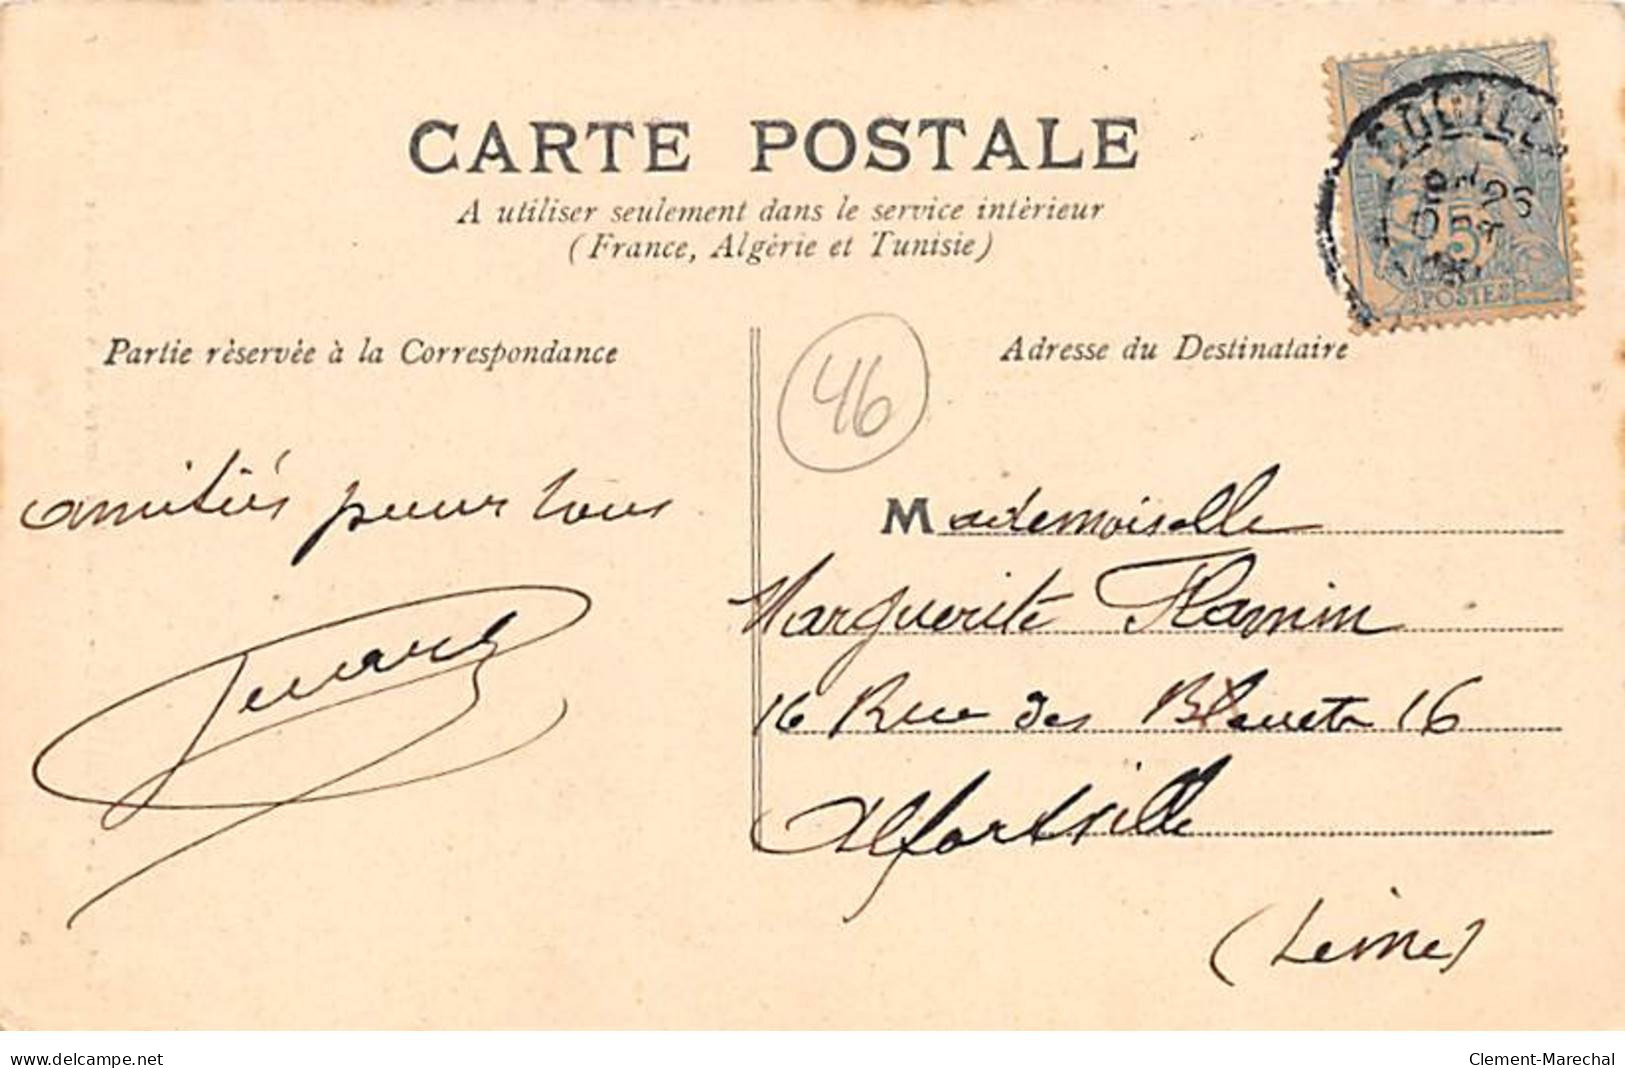 CARTE POSTALE
A utiliser seulement dans le service intérieur
(France, Algérie et Tunisie)
SOUILLA
5
POSTES
Partie réservée à la Correspondance
Adresse du Destinataire
46
amitiés pour tous
Mademoiselle
Marguerite Flamin
16 Rue des Bleuets 16
Alfortville
(Seine)
www.delcampe.net
Clement-Marechal